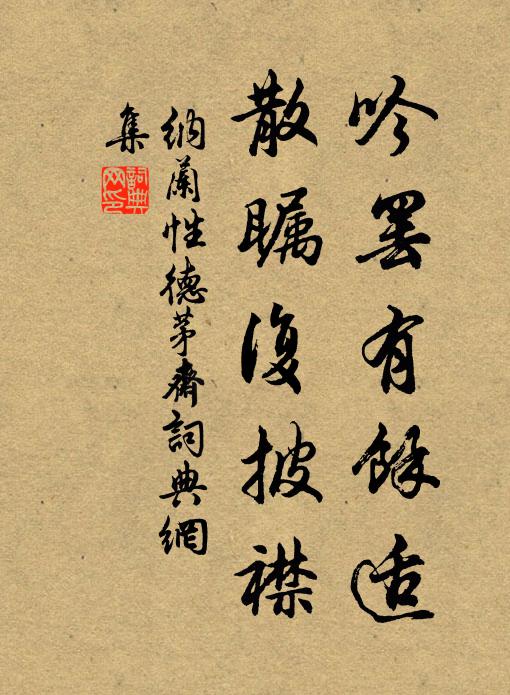 吟罢有馀适
散瞩复披襟
納蘭性德茅齋詞典網
集
詞典網印